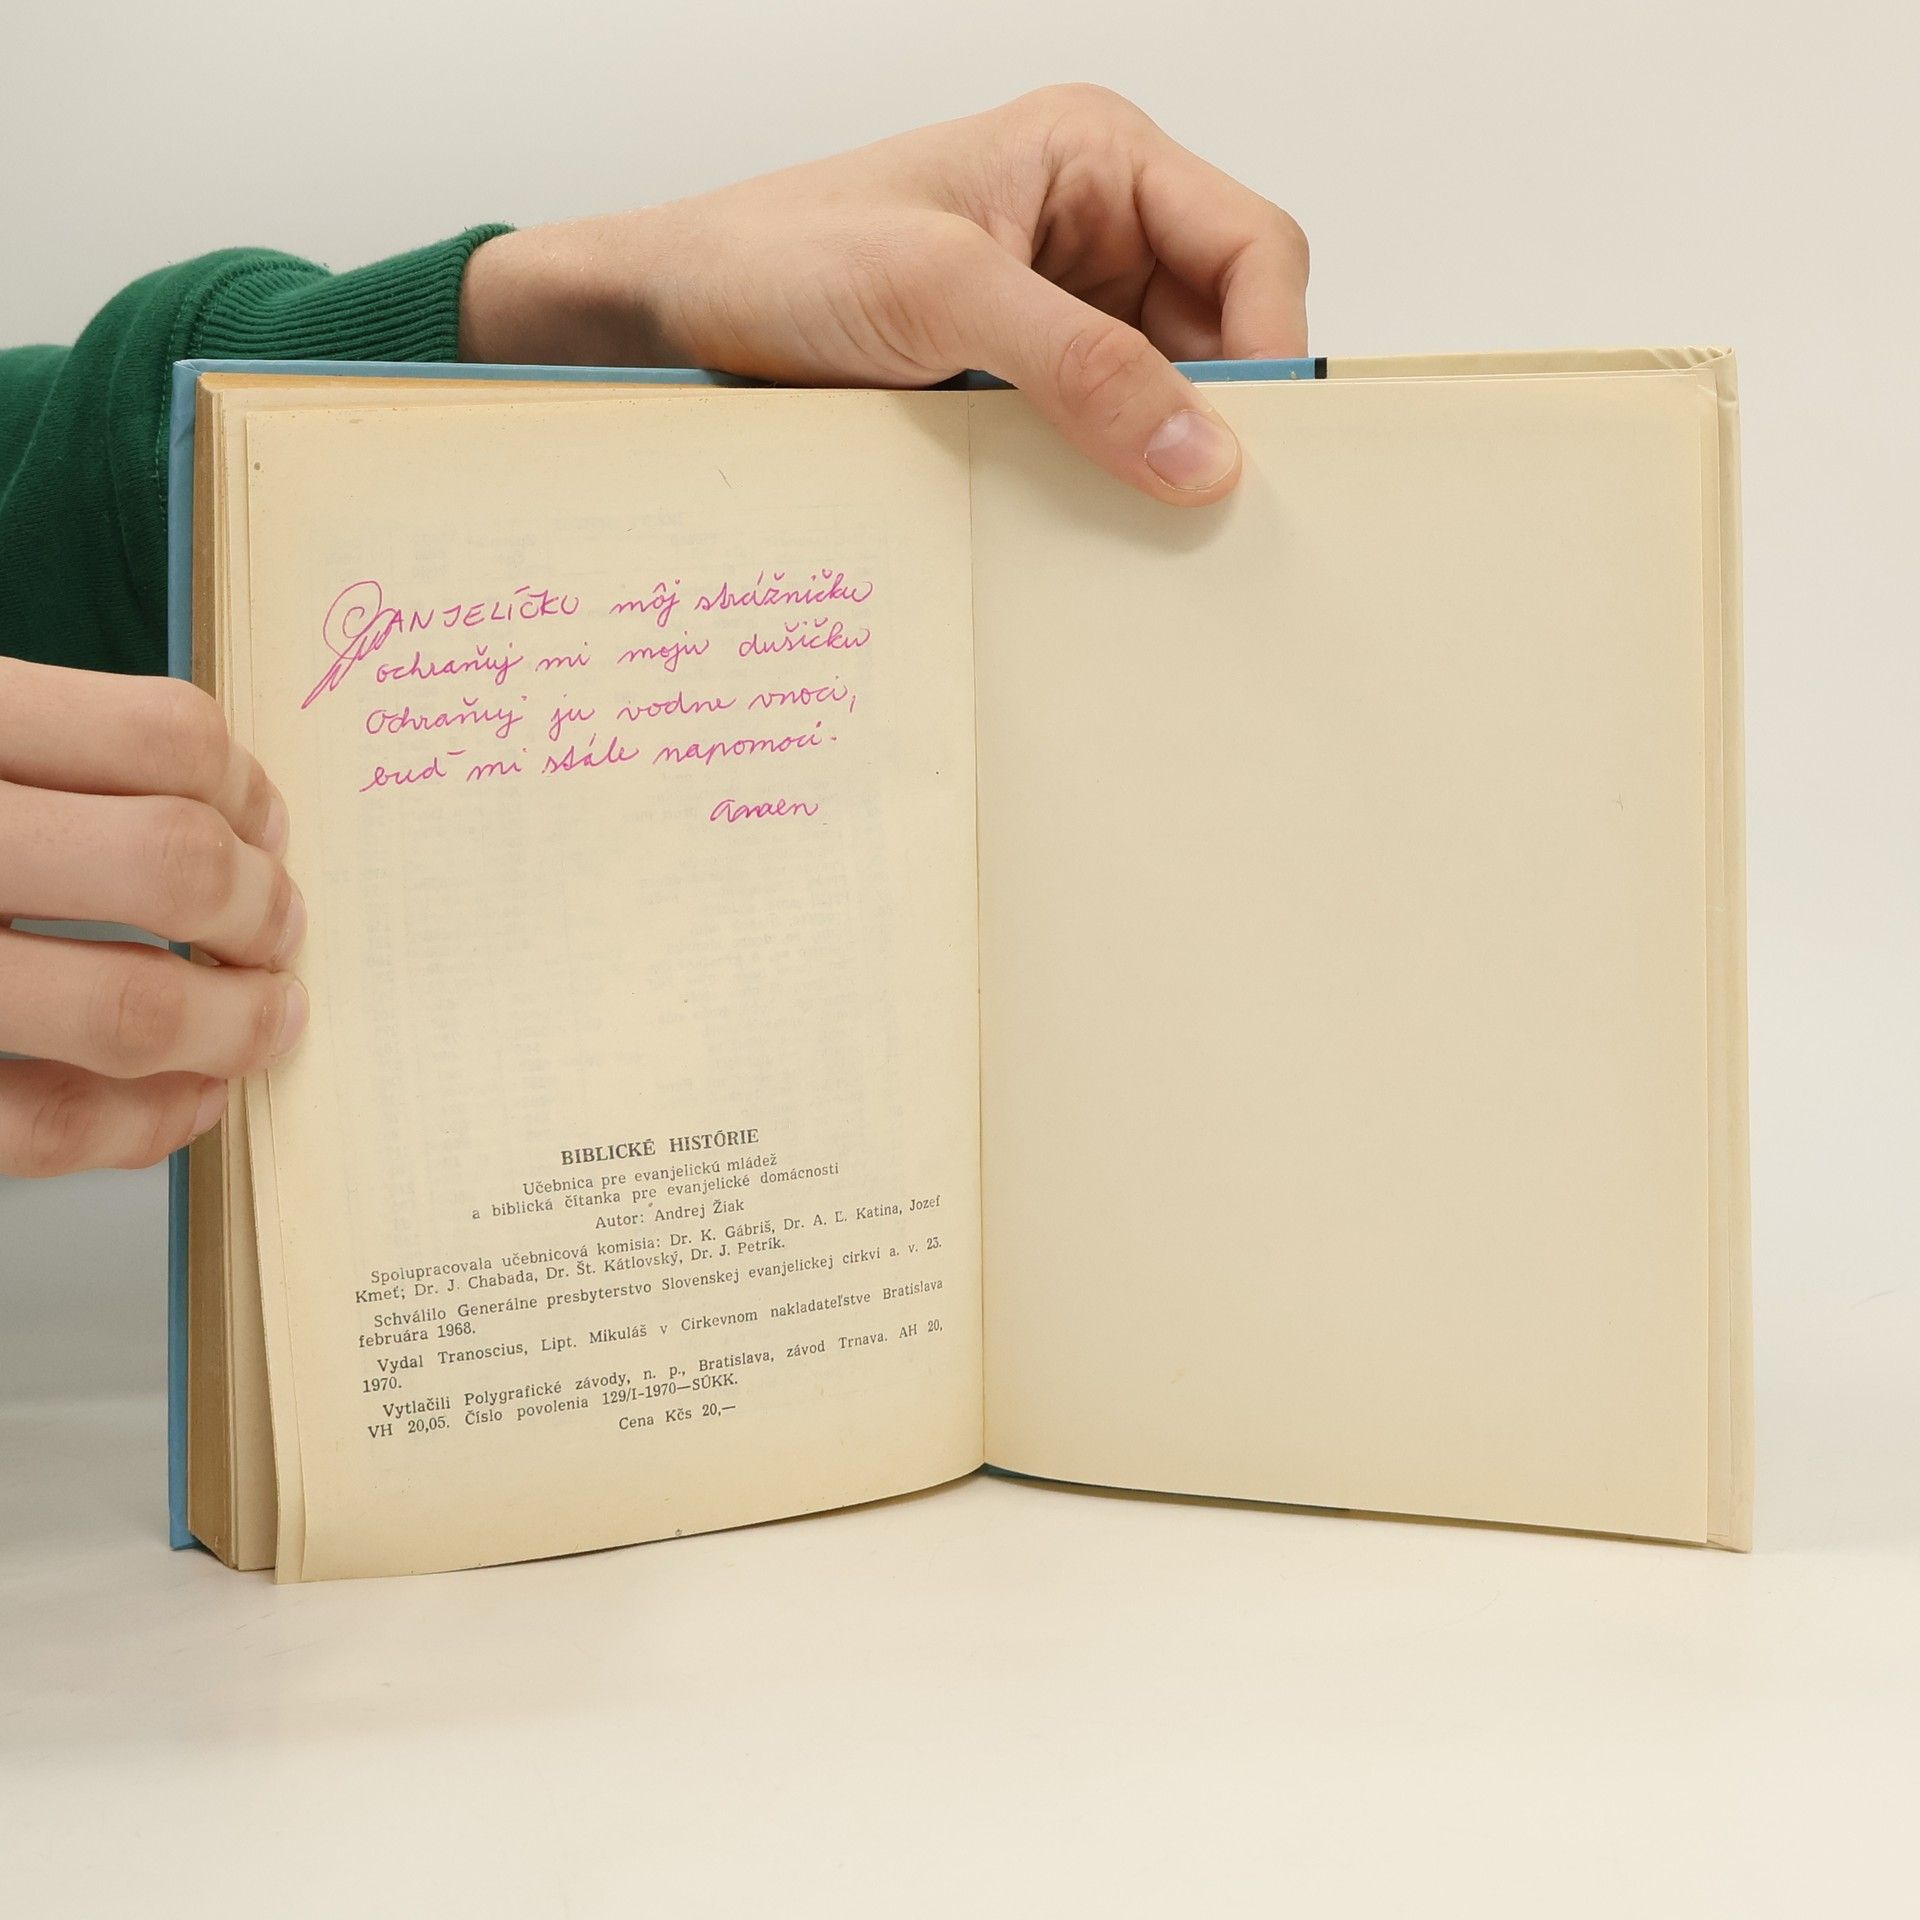 ANJELÍČKU môj strážničku
ochraňuj mi moju dušičku
Ochraňuj ju vodne vnoci,
buď mi stále napomoci.
Amen
BIBLICKÉ HISTÓRIE
Učebnica pre evanjelickú mládež
a biblická čítanka pre evanjelické domácnosti
Autor: Andrej Žiak
Spolupracovala učebnicová komisia: Dr. K. Gábriš, Dr. A. Ľ. Katina, Jozef
Kmeť; Dr. J. Chabada, Dr. Št. Kátlovský, Dr. J. Petrík.
Schválilo Generálne presbyterstvo Slovenskej evanjelickej cirkvi a. v. 23.
februára 1968.
Vydal Tranoscius, Lipt. Mikuláš v Cirkevnom nakladateľstve Bratislava
1970.
Vytlačili Polygrafické závody, n. p., Bratislava, závod Trnava. AH 20,
VH 20,05. Číslo povolenia 129/I-1970—SÚKK.
Cena Kčs 20,—